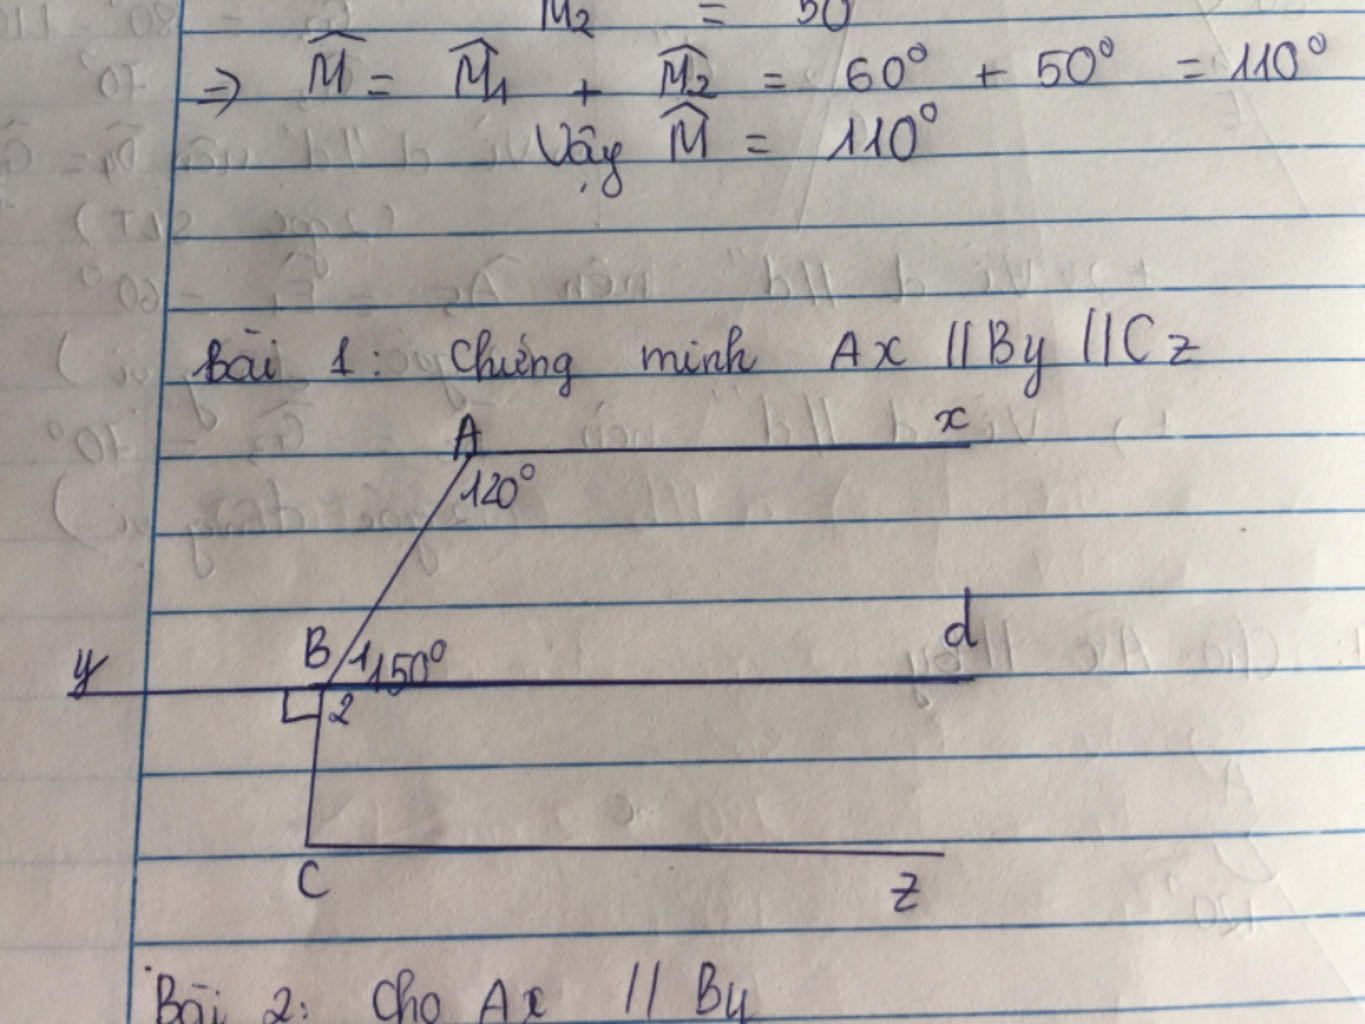 M₂ = 50
⇒ M̂ = M̂₁ + M̂₂ = 60° + 50° = 110°
Vậy M̂ = 110°
Bài 1: Chứng minh Ax // By // Cz
A x
120°
d
B 1 150°
y
2
C z
Bài 2: Cho Ax // By